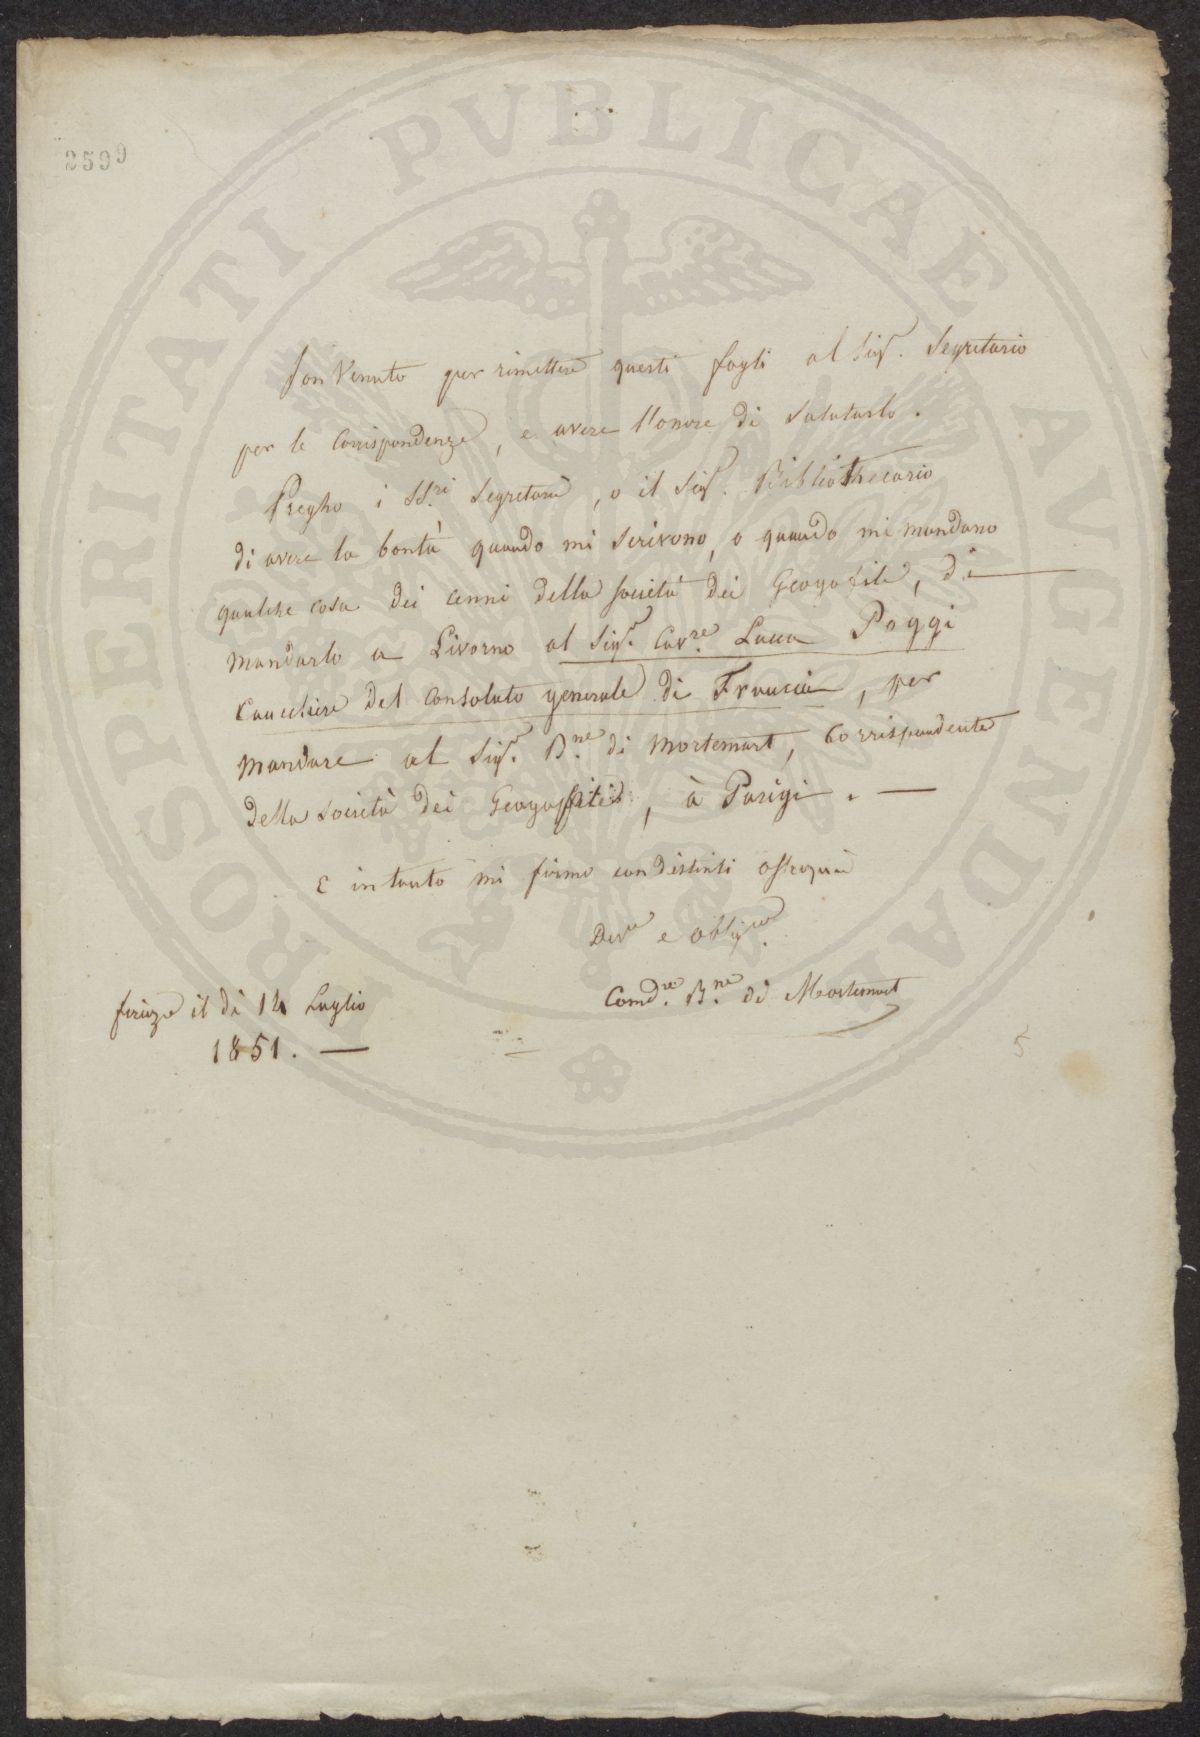 2599
PROSPERITATI PVBLICAE AVGENDAE
Son Venuto per rimettere questi fogli al Sigr. Segretario
per le Corrispondenze, e avere l'onore di Salutarlo.
Pregho i SS.ri Segretarii, o il Sigr. Bibliothecario
di avere la bontà quando mi scrivono, o quando mi mandano
qualche cosa dei cenni della società dei Geogofili, di
mandarlo a Livorno al Sigr. Cav.re Luca Poggi
Cancelliere del Consolato generale di Francia, per
mandare al Sigr. B.ne di Mortemart, Corrispondente
della società dei Geogofili, à Parigi. —
E intanto mi firmo con distinti ossequii
Devo e obligmo.
Comd.re B.ne di Mortemart
firenze il di 14 Luglio
1851. —
5